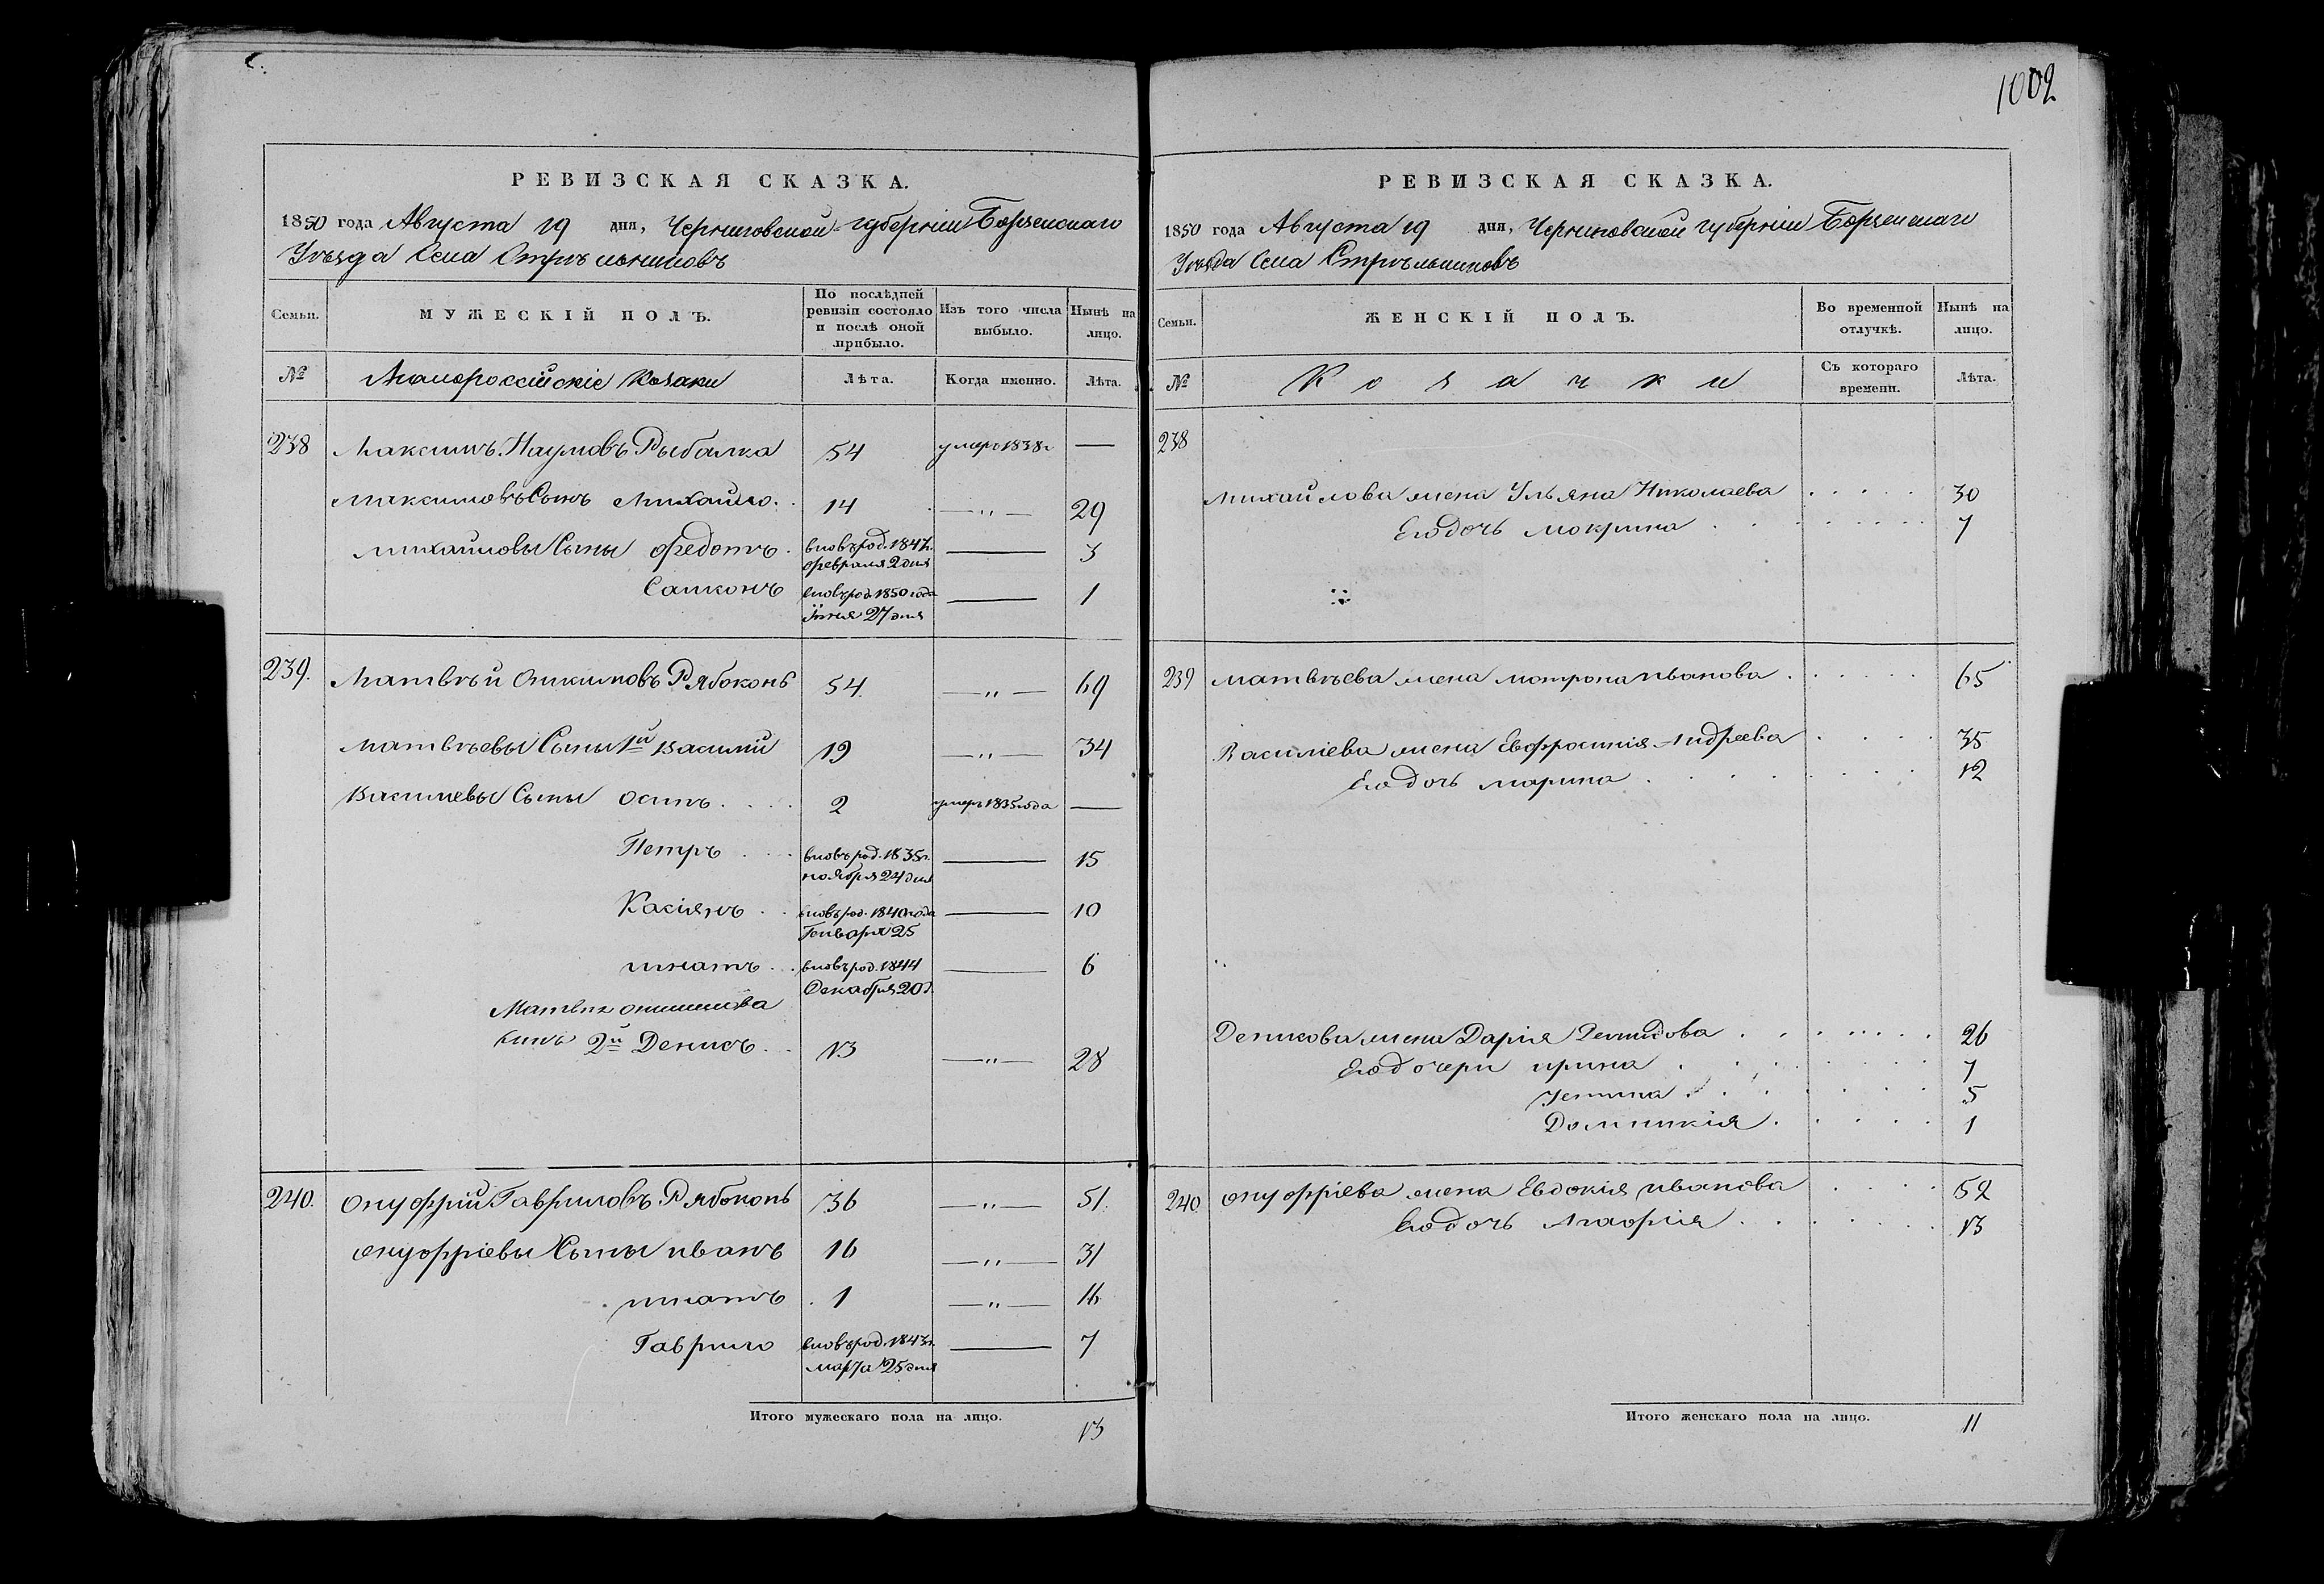 1002
РЕВИЗСКАЯ СКАЗКА.
1850 года Августа 19 дня, Черниговской губерніи Борзенскаго
Уѣзда Села Стрѣльниковъ
Семьи. МУЖЕСКІЙ ПОЛЪ. По послѣдней ревизіи состояло и послѣ оной прибыло. Изъ того числа выбыло. Нынѣ на лицо.
№ Малороссійскіе Козаки Лѣта. Когда именно. Лѣта.
238 Максимъ Наумовъ Рыбалка 54 умеръ 1838г —
Максимовъ Сынъ Михайло. 14 —„— 29
Михайловы Сыны Федотъ. вновь род. 1847г. февраля 2 дня — 3
Самсонъ вновь род. 1850 года Іюня 27 дня — 1
239. Матвѣй Онисимовъ Рябоконь 54. —„— 69
Матвѣевы Сыны 1й Василій 19 —„— 34
Васильевы Сыны Осипъ.... 2 умеръ 1835 года —
Петръ ... вновь род. 1835г. ноября 24 дня — 15
Касіянъ .. вновь род. 1840 года Генваря 25 — 10
Игнатъ .. вновь род. 1844 Декабря 20 д. — 6
Матвѣя Онисимова
Сынъ 2й Денисъ.. 13 —„— 28
240. Онуфрій Гавриловъ Рябоконь 36 —„— 51.
Онуфріевы Сыны Иванъ 16 —„— 31
Игнатъ 1 —„— 16
Гаврило вновь род. 1843г. марта 25 дня — 7
Итого мужескаго пола на лицо. 13
РЕВИЗСКАЯ СКАЗКА.
1850 года Августа 19 дня, Черниговской губерніи Борзенскаго
Уѣзда Села Стрѣльниковъ
Семьи. ЖЕНСКІЙ ПОЛЪ. Во временной отлучкѣ. Нынѣ на лицо.
№ Козачки Съ котораго времени. Лѣта.
238
Михайлова жена Ульяна Николаева ..... 30
Его дочь Мокрина ....... 7
239 Матвѣева жена Мотрона Иванова ...... 65
Василіева жена Евфросинія Андреева .... 35
Его дочь Марина ....... 12
Денисова жена Дарія Демидова ...... 26
Его дочери Ирина ...... 7
Устина ...... 5
Домникія ..... 1
240. Онуфріева жена Евдокія Иванова .... 52
Его дочь Марфія ....... 13
Итого женскаго пола на лицо. 11